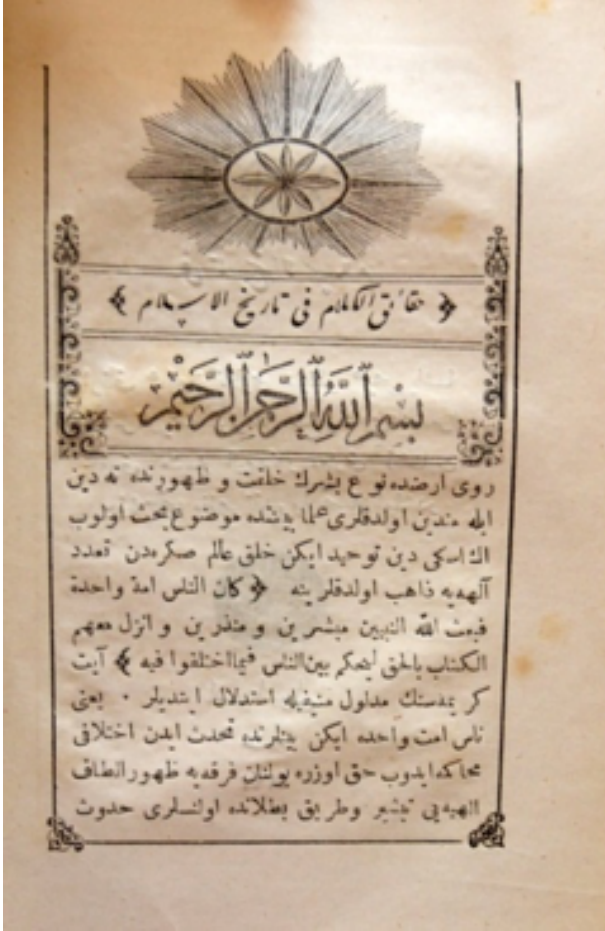 ﴿ حقائق الكلام فى تاريخ الاسلام ﴾
بسم الله الرحمن الرحيم
روى ارضده نوع بشرك خلقت و ظهورنده نه دين
ايله متدين اولدقلرى علما بيننده موضوع بحث اولوب
اك اسكى دين توحيد ايكن خلق عالم صكره دن تعدد
آلهه يه ذاهب اولدقلرينه ﴿ كان الناس امة واحدة
فبعث الله النبيين مبشرين و منذرين و انزل معهم
الكتاب بالحق ليحكم بين الناس فيما اختلفوا فيه ﴾ آيت
كريمه سنك مدلول منيفيله استدلال ايتديلر ٠ يعنى
ناس امت واحده ايكن بينلرنده تحدث ايدن اختلافى
محاكمه ايدوب حق اوزره بولنان فرقه يه ظهور الطاف
الهيه يى تبشير وطريق بطلانده اولنلرى حدوث